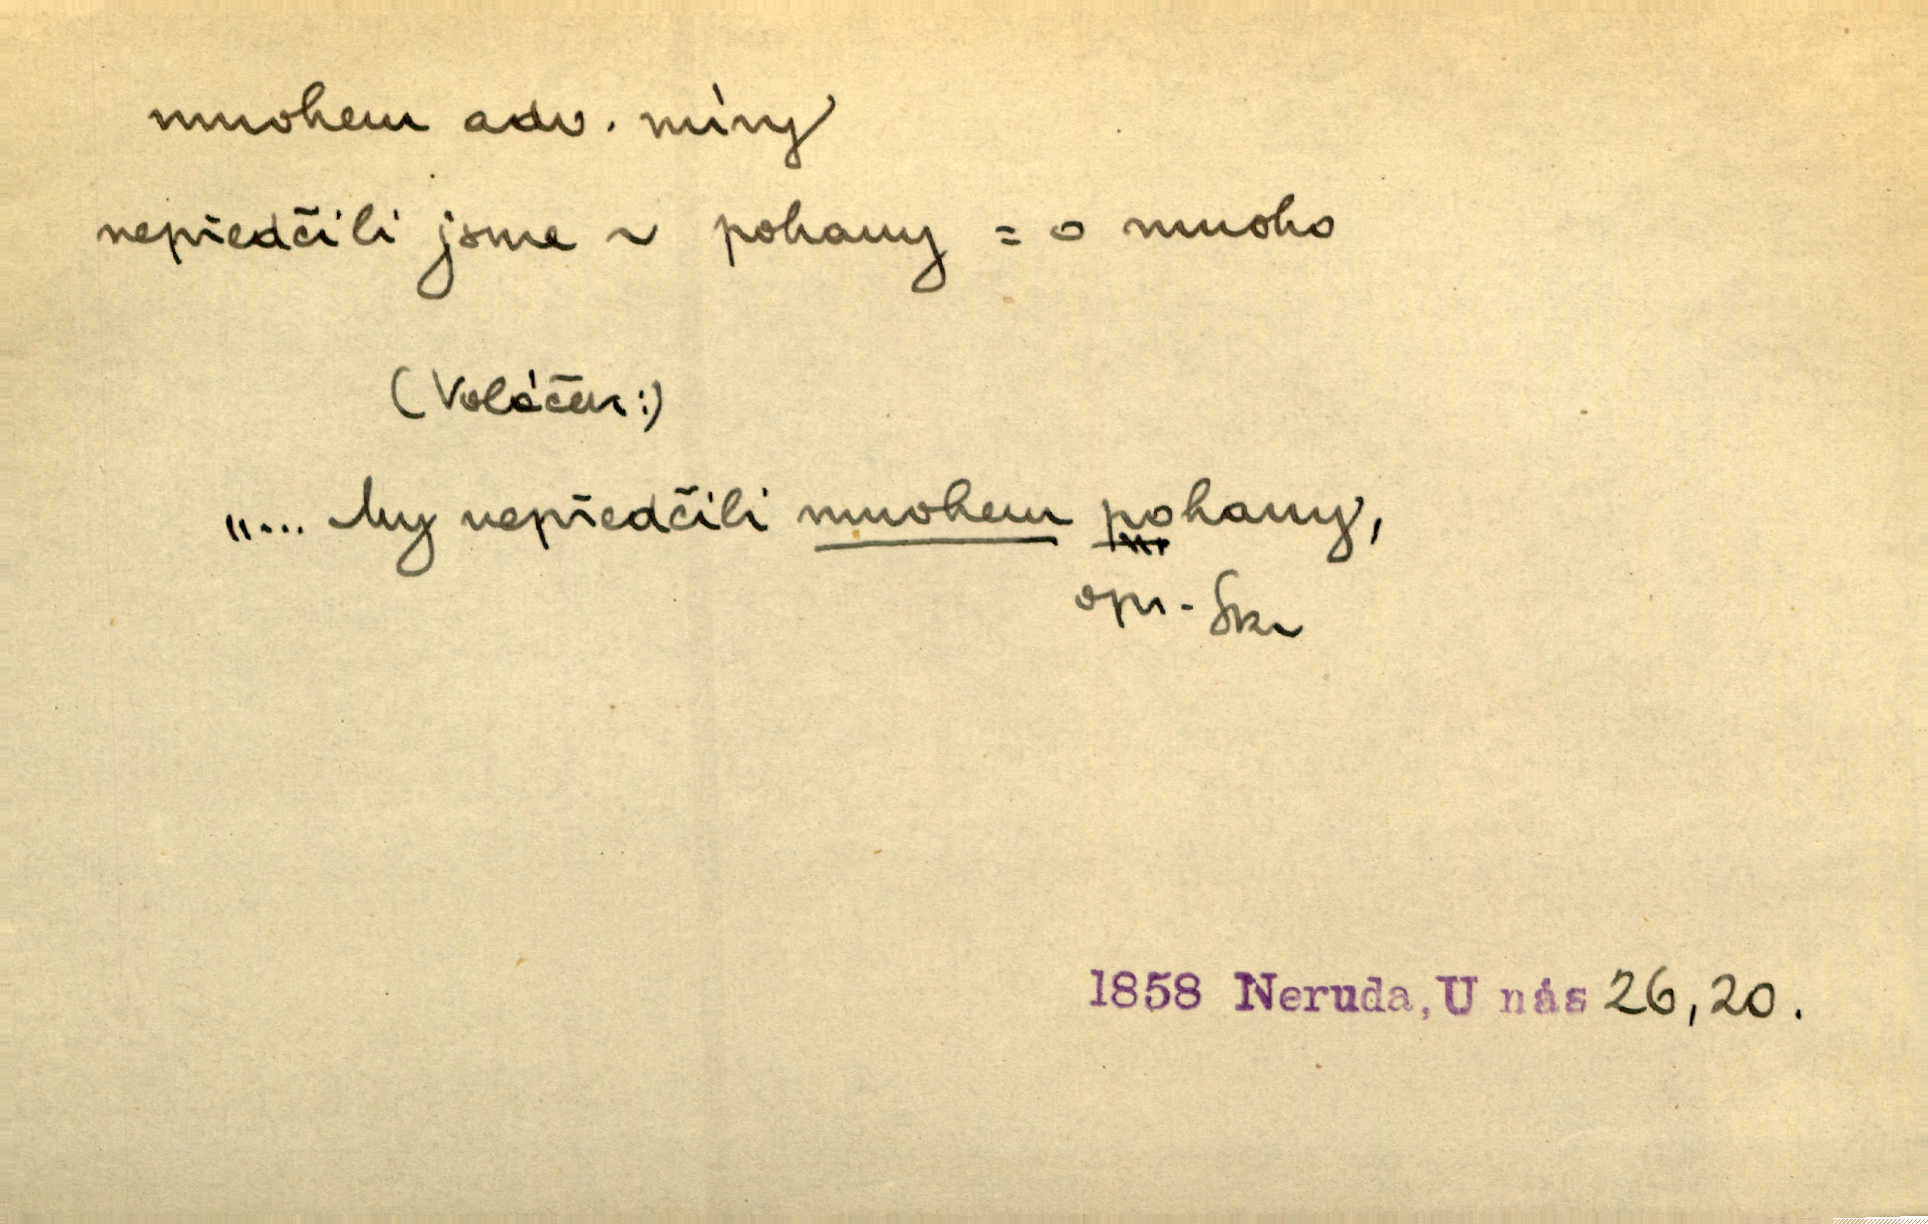 mnohem adv. míry
nepředčili jsme ~ pohany = o mnoho
(Voláček:)
„... My nepředčili mnohem pohany,
opr.
1858 Neruda, U nás 26,20.